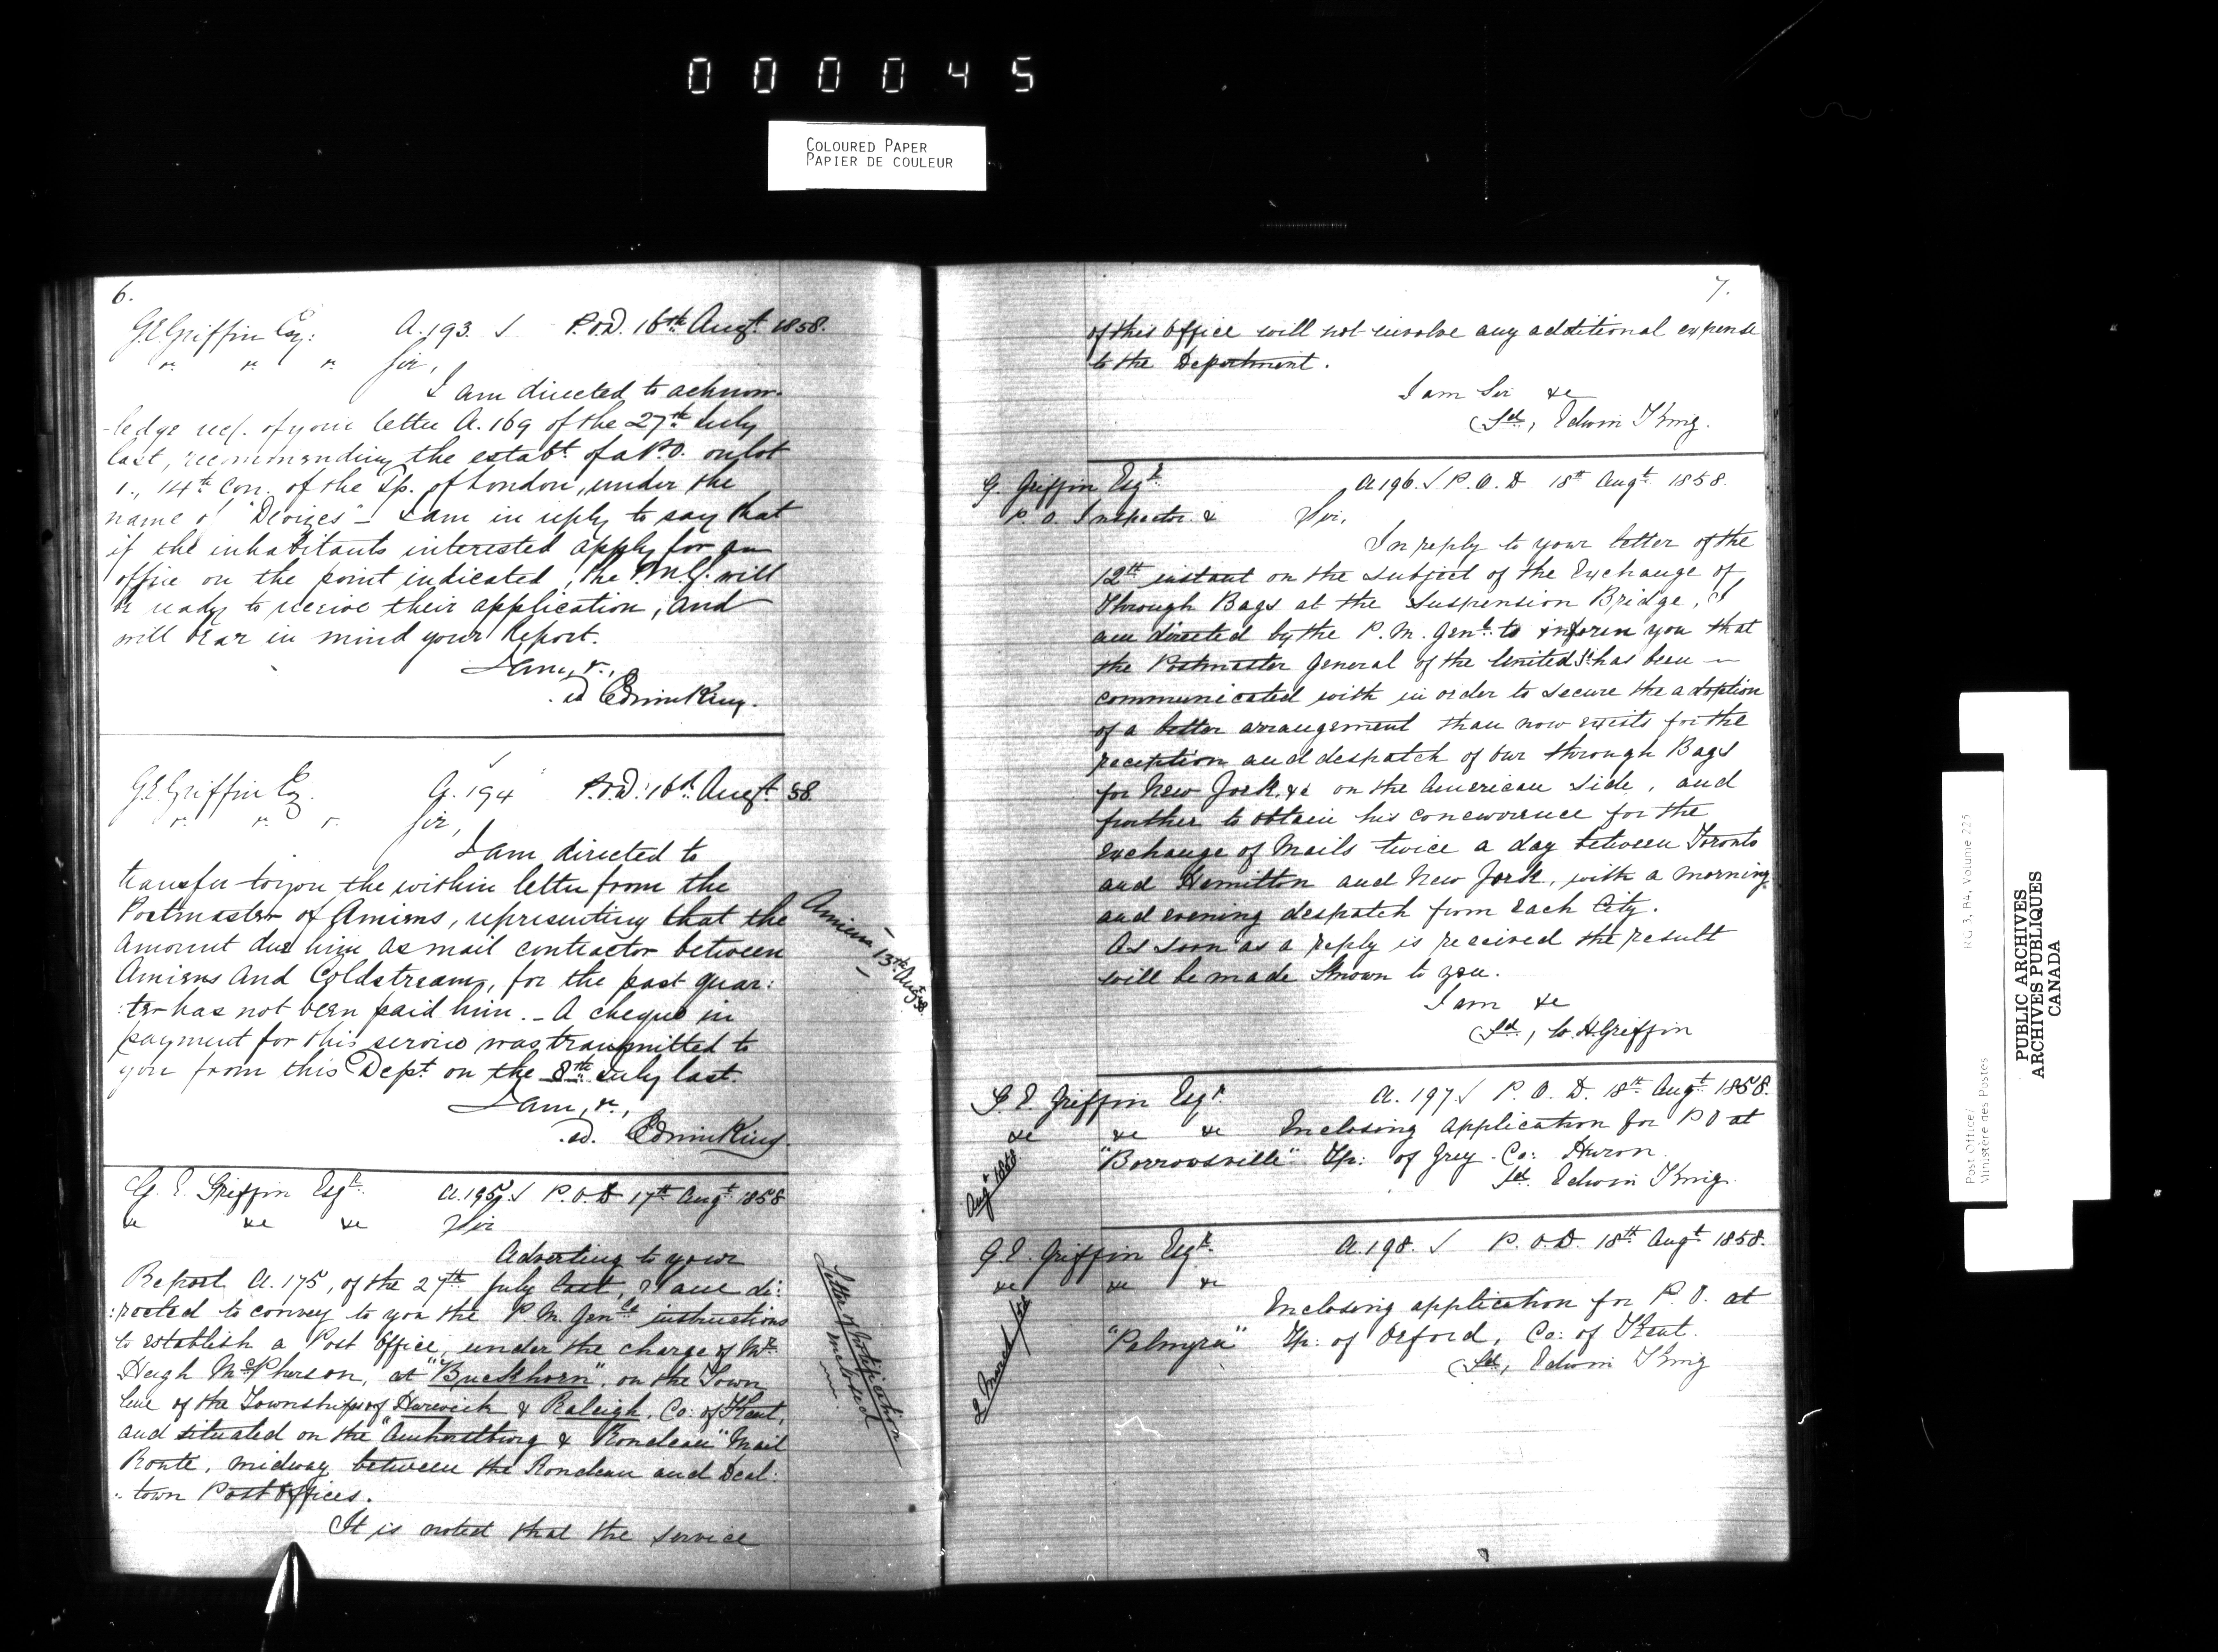 000045
COLOURED PAPER
PAPIER DE COULEUR
6.
G.E. Griffin Esq: A. 193. ✓ P.O.D. 16th Augt 1858.
" " " Sir,
I am directed to acknow-
-ledge rec/. of your letter A. 169 of the 27th July
last, recommending the estabt. of a P.O. on lot
1., 14th Con. of the Tp. of London, under the
name of "Devizes" - I am in reply to say that
if the inhabitants interested apply for an
office on the point indicated, the P.M.G. will
be ready to receive their application, and
will bear in mind your Report.
I am, &c.,
.sd Edwin King.
G.E. Griffin Esq. A. 194 ✓ P.O.D. 16th Augt 58.
" " " Sir,
I am directed to
transfer to you the within letter from the
Postmaster of Amiens, representing that the
amount due him as mail contractor between
Amiens and Coldstream, for the past quar:
:ter has not been paid him. - A cheque in
payment for this service was transmitted to
you from this Dept. on the 8th July last.
I am, &c.,
.sd. Edwin King.
Amiens 13th Augt 58.
G. E. Griffin Esqr. A. 195 ✓ P.O.D 17th Augt 1858
&c &c &c Sir
Adverting to your
Report A. 175, of the 27th July last, I am di:
:rected to convey to you the P. M. Genls instructions
to establish a Post Office, under the charge of Mr.
Hugh McPherson, at "Buckhorn", on the Town
line of the Townships of Harwich & Raleigh, Co: of Kent,
and situated on the "Amherstburg & Rondeau" Mail
Route, midway between the Rondeau and Deal:
:town Post Offices.
It is noted that the service
Letter of Notification
enclosed
7.
of this office will not involve any additional expense
to the Department.
I am Sir &c
(Sd., Edwin King.
G. Griffin Esqr. A 196. ✓ P.O.D 18th Augt 1858.
P. O. Inspector & Sir,
In reply to your letter of the
12th instant on the subject of the Exchange of
Through Bags at the Suspension Bridge, I
am directed by the P. M. Genl. to inform you that
the Postmaster General of the United St. has been
communicated with in order to secure the adoption
of a better arrangement than now exists for the
reception and despatch of our through Bags
for New York, &c on the American side, and
further to obtain his concurrence for the
exchange of Mails twice a day between Toronto
and Hamilton and New York, with a morning
and evening despatch from each City.
As soon as a reply is received the result
will be made known to you.
I am &c
(Sd., W. H. Griffin
G. E. Griffin Esqr. A. 197. ✓ P. O. D. 18th Augt 1858.
&c &c &c Enclosing application for P O at
"Borrowsville" Tp: of Grey. Co: Huron.
Sd. Edwin King.
G. E. Griffin Esqr. A. 198. ✓ P. O. D. 18th Augt 1858.
&c &c &c
Enclosing application for P. O. at
"Palmyra" Tp: of Orford, Co: of Kent.
(Sd., Edwin King
Post Office/
Ministère des Postes
RG 3, B4, Volume 225
PUBLIC ARCHIVES
ARCHIVES PUBLIQUES
CANADA